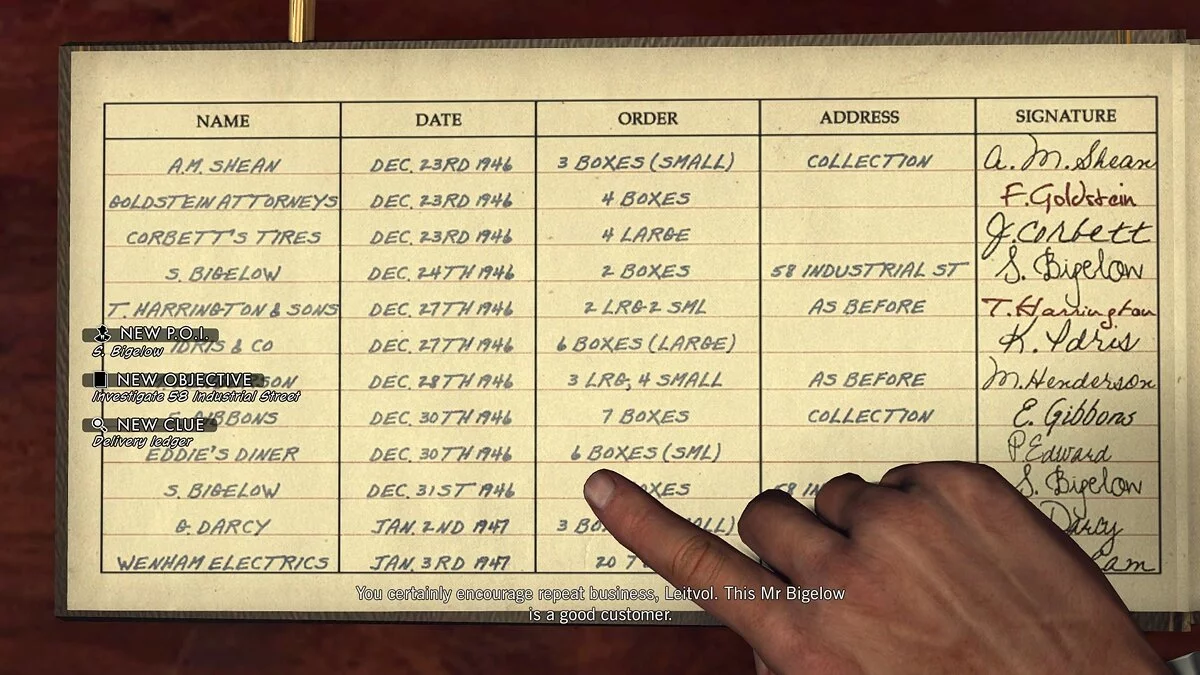 NAME DATE ORDER ADDRESS SIGNATURE
A.M. SHEAN DEC. 23RD 1946 3 BOXES (SMALL) COLLECTION A. M. Shean
GOLDSTEIN ATTORNEYS DEC. 23RD 1946 4 BOXES F. Goldstein
CORBETT'S TIRES DEC. 23RD 1946 4 LARGE J. Corbett
S. BIGELOW DEC. 24TH 1946 2 BOXES 58 INDUSTRIAL ST S. Bigelow
T. HARRINGTON & SONS DEC. 27TH 1946 2 LRG 2 SML AS BEFORE T. Harrington
NEW P.O.I.
S. Bigelow
IDRIS & CO DEC. 27TH 1946 6 BOXES (LARGE) K. Idris
NEW OBJECTIVE
Investigate 58 Industrial Street
DEC. 28TH 1946 3 LRG, 4 SMALL AS BEFORE M. Henderson
NEW CLUE
Delivery ledger
GIBBONS DEC. 30TH 1946 7 BOXES COLLECTION E. Gibbons
EDDIE'S DINER DEC. 30TH 1946 6 BOXES (SML) P Edward
S. BIGELOW DEC. 31ST 1946 58 S. Bigelow
G. DARCY JAN. 2ND 1947 3 Darcy
WENHAM ELECTRICS JAN. 3RD 1947 20
You certainly encourage repeat business, Leitvol. This Mr Bigelow
is a good customer.